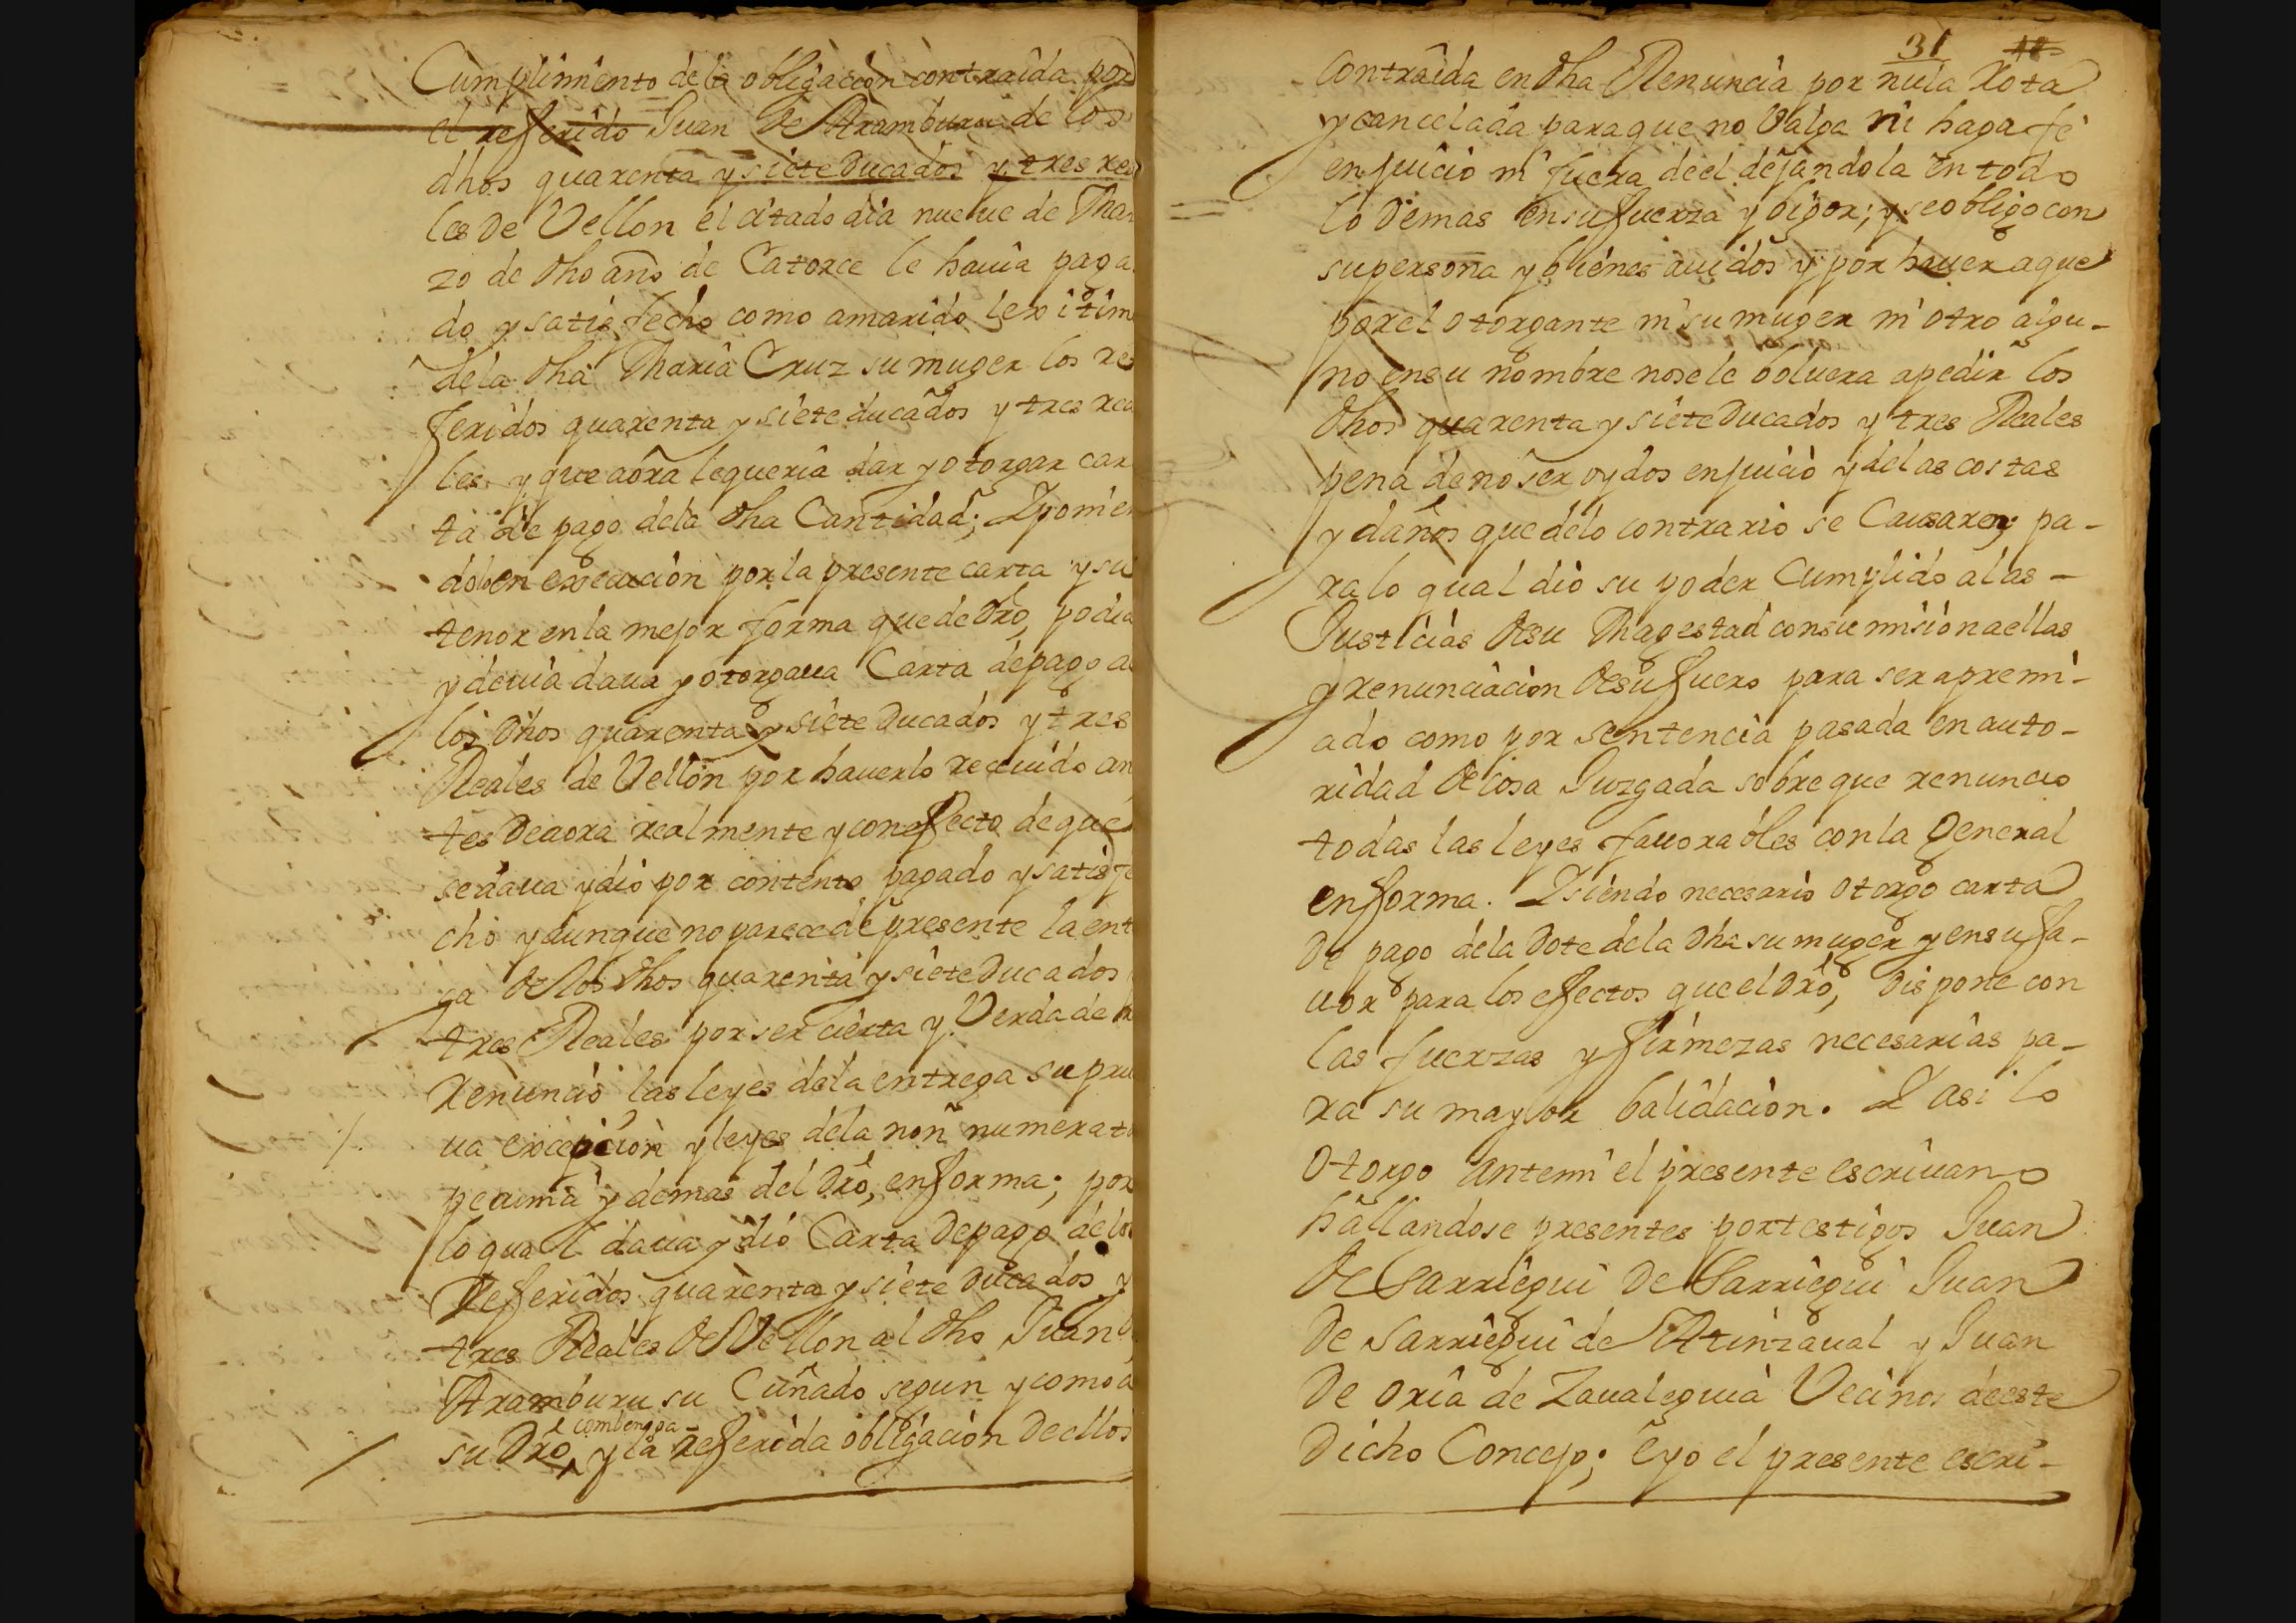 Cumplimiento dela obligaciòn contraida por
el referido Juan de Aramburu de los
dhos quarenta y siete Ducados y tres rea
les de Vellon el citado dia nueue de Mar
zo de dho año de Catorce le hauia paga
do y satisfecho como amarido lexitim
dela dha Maria Cruz su muger los re
feridos quarenta y siete ducados y tres rea
les y que aora lequeria dar y otorgar car
ta de pago dela dha Cantidad; Y ponien
dolo en execucion por la presente carta y su
tenor en la mejor forma que de dro, podia
y deuia daua y otorgaua Carta de pago de
los dhos quarenta y siete Ducados y tres
Reales de Vellon por hauerlo receuido an
tes Deaora realmente y con efecto de que
se daua y dio por contento pagado y satisfe
cho y aunque no parece de presente la ent
ga de los dhos quarenta y siete Ducados
tres Reales por ser cierta y Verdadera
Renunciò las leyes dela entrega su pru
ua excepcion y leyes dela non numerata
pecunia y demas del dro, en forma; por
lo qual daua y dió Carta de pago de los
Referidos quarenta y siete Ducados y
tres Reales de Vellon al dho Juan
Aramburu su Cuñado segun y como a
combenga
su Dro y la Referida obligaciòn Deellos
31 18
Contraida en dha Renuncia por nula Rota
y cancelada paraque no Valga ni haga fè
en juicio ni fuera deel dejandola en todo
lo demas en su fuerza y bigor; y se obligo con
su persona y bienes auidos y por hauer a que
por el otorgante ni su muger ni otro algu-
no en su nombre nosele boluera apedir los
dhos quarenta y siete Ducados y tres Reales
pena de no ser oydos en juicio y delas costas
y daños que delo contrario se Causaren; pa-
ra lo qual diò su poder Cumplido alas -
Justicias de su Magestad con sumision a ellas
y renunciaciòn de su fuero para ser apremi-
ado como por sentencia pasada en auto-
ridad de cosa Juzgada sobre que renuncio
todas las leyes fauorables con la General
en forma. Y siendo necesario otorgo carta
de pago dela Dote dela dha su muger y en su fa-
uor para los efectos que el dro, dispone con
las fuerzas y firmezas necesarias pa-
ra su mayor balidaciòn. Y asi lo
otorgo ante mi el presente escriuano
hallandose presentes por testigos Juan
de Sarriegui de Sarriegui Juan
de Sarriegui de Atinzaual y Juan
de Oria de Zaualeguia Vecinos de este
Dicho Concejo; e yo el presente escri-